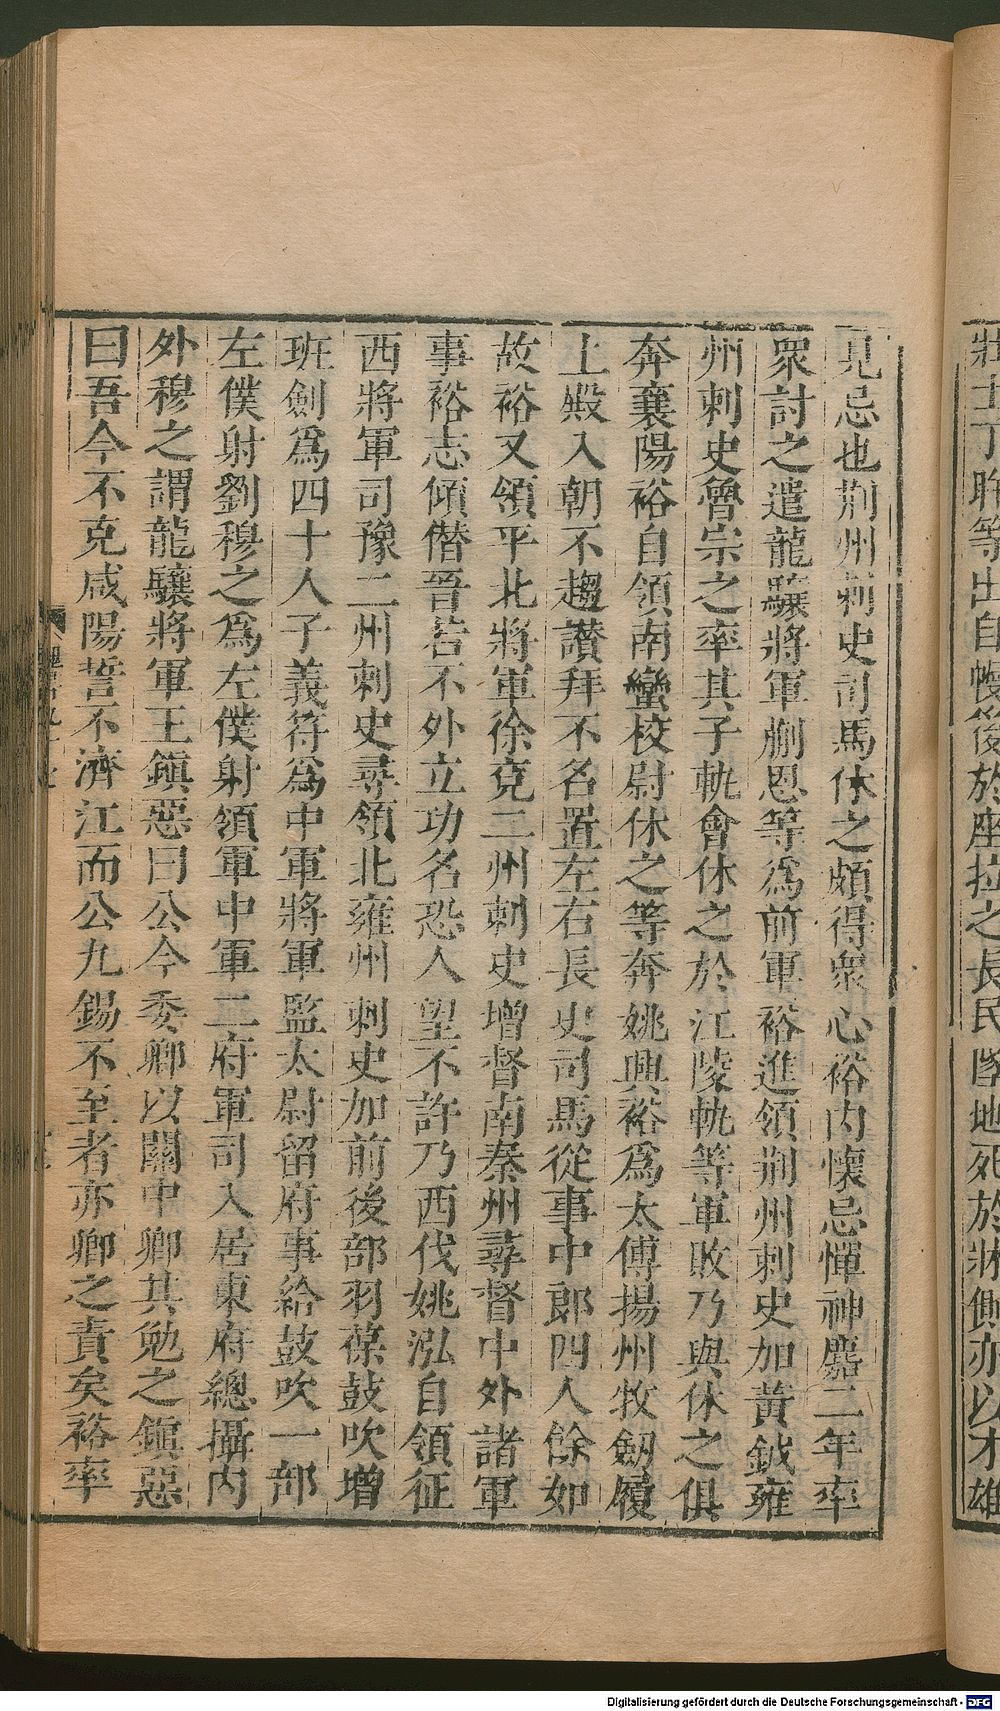 將士丁旿等出自幔後於座拉之長民墜地死於牀側亦以才雄
見忌也荆州刺史司馬休之頗得衆心裕内懷忌憚神麚二年率
衆討之遣龍驤將軍蒯恩等爲前軍裕進領荆州刺史加黃鉞雍
州刺史魯宗之率其子軌會休之於江陵軌等軍敗乃與休之俱
奔襄陽裕自領南蠻校尉休之等奔姚興裕爲太傅揚州牧劔履
上殿入朝不趨讃拜不名置左右長史司馬從事中郎四人餘如
故裕又領平北將軍徐兗二州刺史增督南秦州尋督中外諸軍
事裕志傾僭晉若不外立功名恐人望不許乃西伐姚泓自領征
西將軍司豫二州刺史尋領北雍州刺史加前後部羽葆鼓吹增
班劍爲四十人子義符爲中軍將軍監太尉留府事給鼓吹一部
左僕射劉穆之爲左僕射領軍中軍二府軍司入居東府總攝内
外穆之謂龍驤將軍王鎭惡曰公今委卿以關中卿其勉之鎭惡
曰吾今不克咸陽誓不濟江而公九錫不至者亦卿之責矣裕率
Digitalisierung gefördert durch die Deutsche Forschungsgemeinschaft - DFG